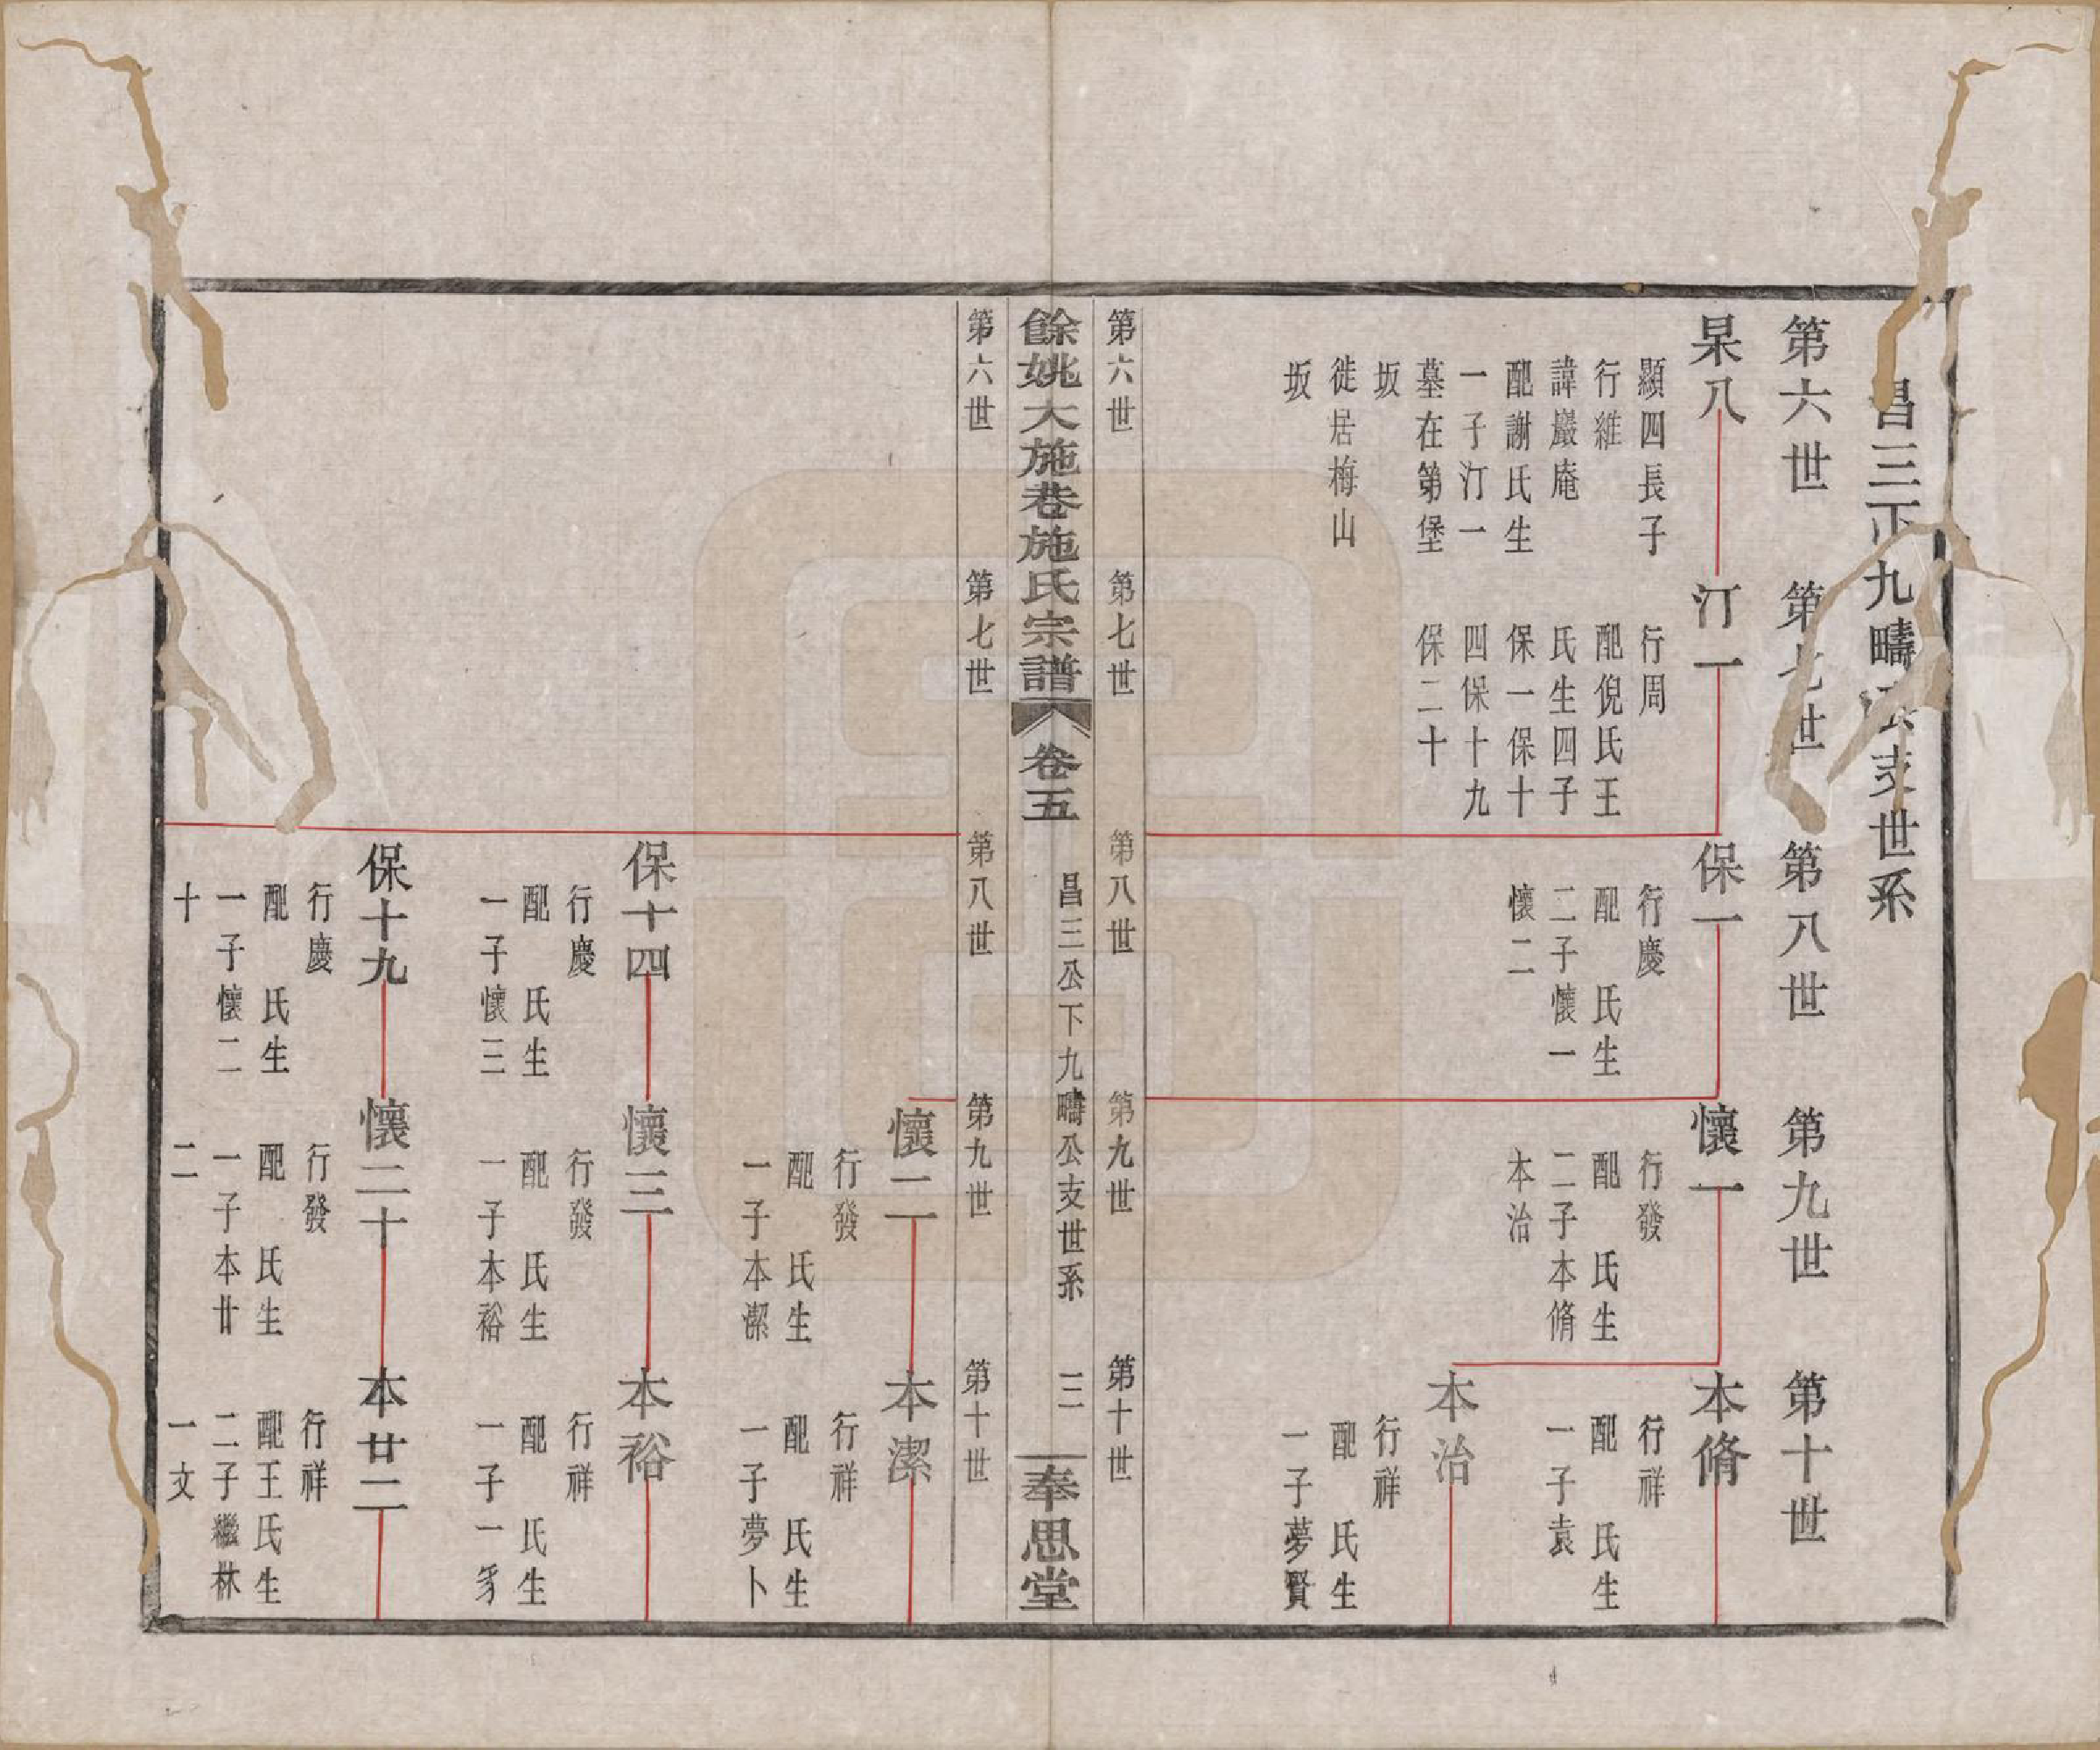 昌三下九疇公支世系
第六世
第七世
第八世
第九世
第十世
杲八
顯四長子
行維
諱巖庵
配謝氏生
一子汀一
墓在第堡
坂
徙居梅山
坂
汀一
行周
配倪氏王
氏生四子
保一保十
四保十九
保二十
保一
行慶
配 氏生
二子懷一
懷二
懷一
行發
配 氏生
二子本脩
本治
本脩
行祥
配 氏生
一子袁
本治
行祥
配 氏生
一子夢賢
第六世
第七世
第八世
第九世
第十世
餘姚大施巷施氏宗譜
卷五
昌三公下九疇公支世系
三
奉思堂
第六世
第七世
第八世
第九世
第十世
懷二
行發
配 氏生
一子本潔
本潔
行祥
配 氏生
一子夢卜
保十四
行慶
配 氏生
一子懷三
懷三
行發
配 氏生
一子本裕
本裕
行祥
配 氏生
一子一豸
保十九
行慶
配 氏生
一子懷二
十
懷二十
行發
配 氏生
一子本廿
二
本廿二
行祥
配王氏生
二子繼林
一文